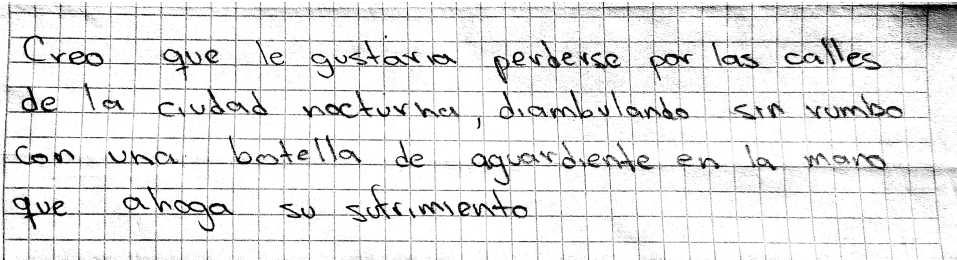 Creo que le gustaria perderse por las calles
de la ciudad nocturna, diambulando sin rumbo
con una botella de aguardiente en la mano
que ahoga su sufrimiento